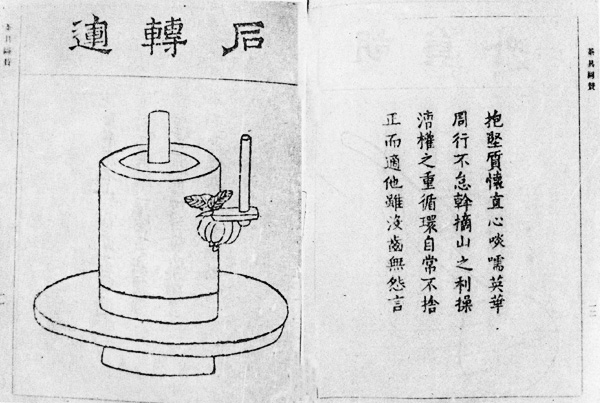 茶具圖贊
抱堅質懷直心啖嚅英華
周行不怠幹摘山之利操
漕權之重循環自常不捨
正而適他雖沒齒無怨言
石轉運
茶具圖贊